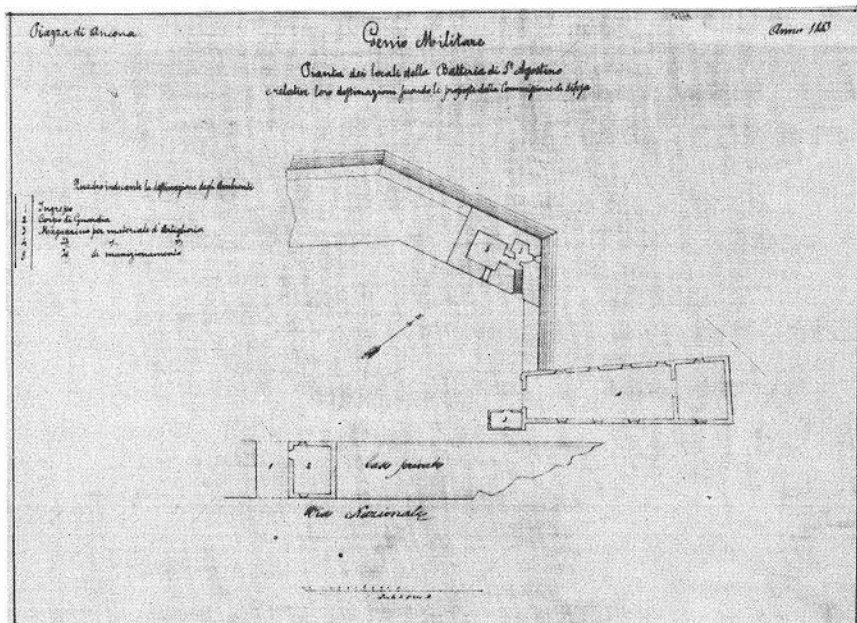 Piazza di Ancona
Genio Militare
Anno 1883
Pianta dei locali della Batteria di S. Agostino
e relative loro destinazioni secondo le proposte della Commissione di difesa
Quadro indicante la destinazione degli Ambienti
1 Ingresso
2 Corpo di Guardia
3 Magazzino per materiale d'Artiglieria
4 Id
5 Id di munizionamento
3
1
2
Case private
Via Nazionale